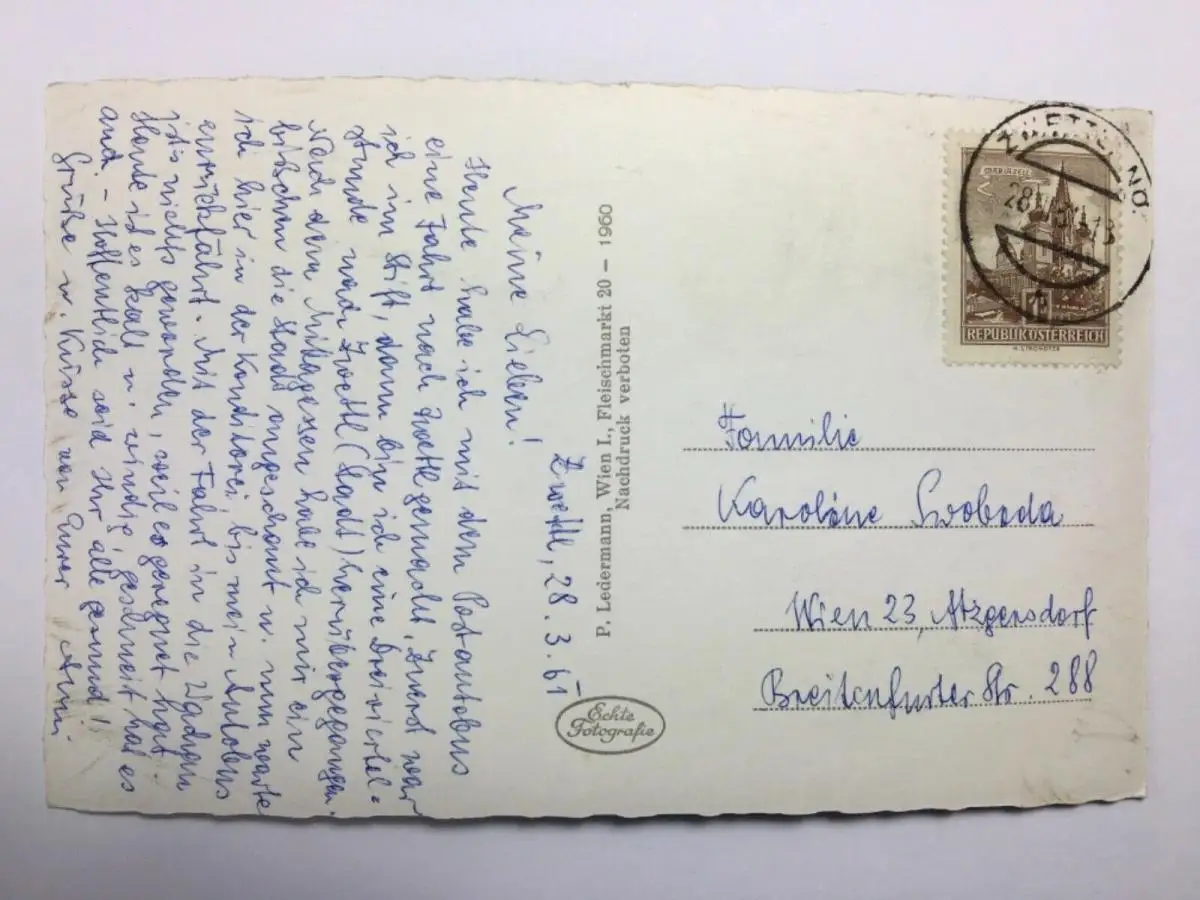 Zwettl, 28.3.61
Meine Lieben!
Heute habe ich mit dem Postautobus
eine Fahrt nach Zwettl gemacht. Zuerst war
ich im Stift, dann bin ich eine Dreiviertel=
stunde nach Zwettl (Stadt) herübergegangen.
Nach dem Mittagessen habe ich mir ein
bißchen die Stadt angeschaut u. nun warte
ich hier in der Konditorei, bis mein Autobus
zurückfährt. Mit der Fahrt in die Wachau
ist's nichts geworden, weil es geregnet hat.
Heute ist es kalt u. windig, geschneit hat es
auch. - Hoffentlich seid Ihr alle gesund!
Grüße u. Küsse von Eurer
P. Ledermann, Wien I., Fleischmarkt 20 – 1960
Nachdruck verboten
Echte
Fotografie
ZWETTL, NÖ.
28
MARIAZELL
REPUBLIK ÖSTERREICH
Familie
Karoline Svoboda
Wien 23, Atzgersdorf
Breitenfurter Str. 288